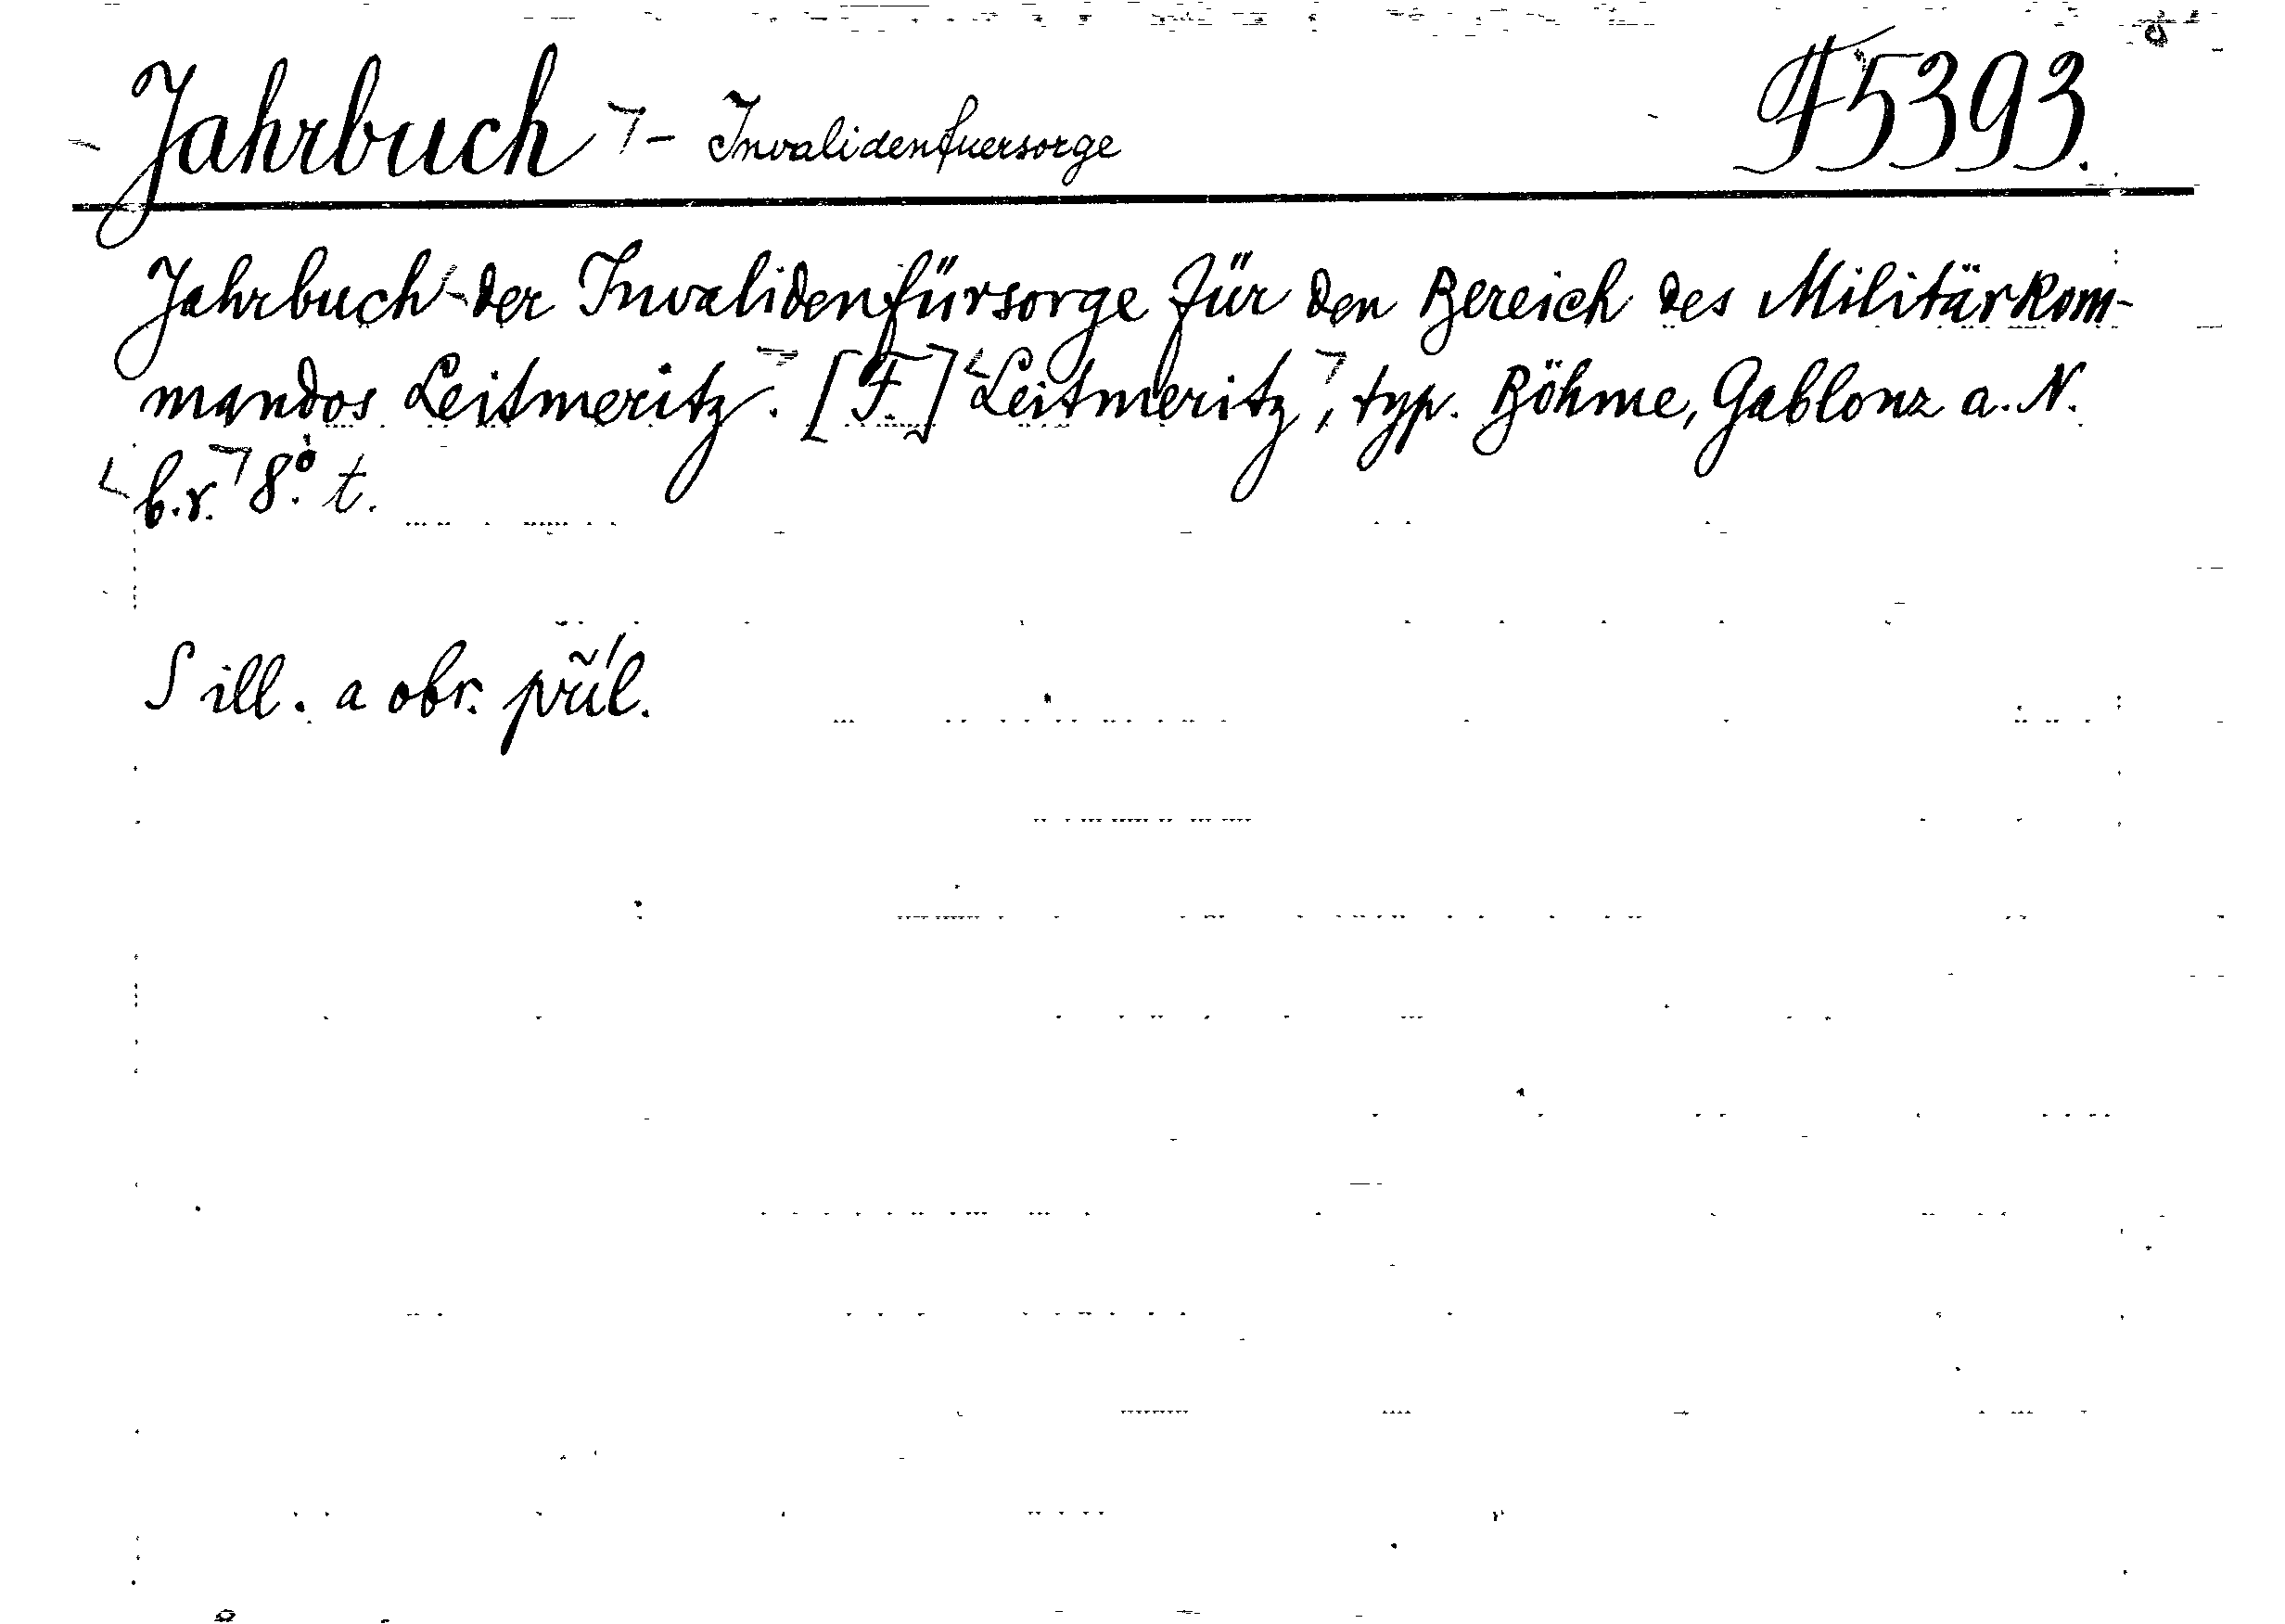 Jahrbuch - Invalidenfuersorge F 5393.
Jahrbuch der Invalidenfürsorge für den Bereich des Militärkom-
mandos Leitmeritz. [F.] Leitmeritz, typ. Böhme, Gablonz a. N.
b.r. 8° t.
S ill. a obr. příl.